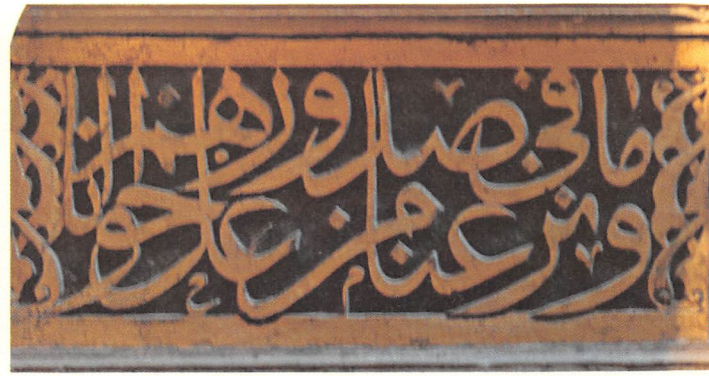 ونزعنا ما في صدورهم من غل اخوانا